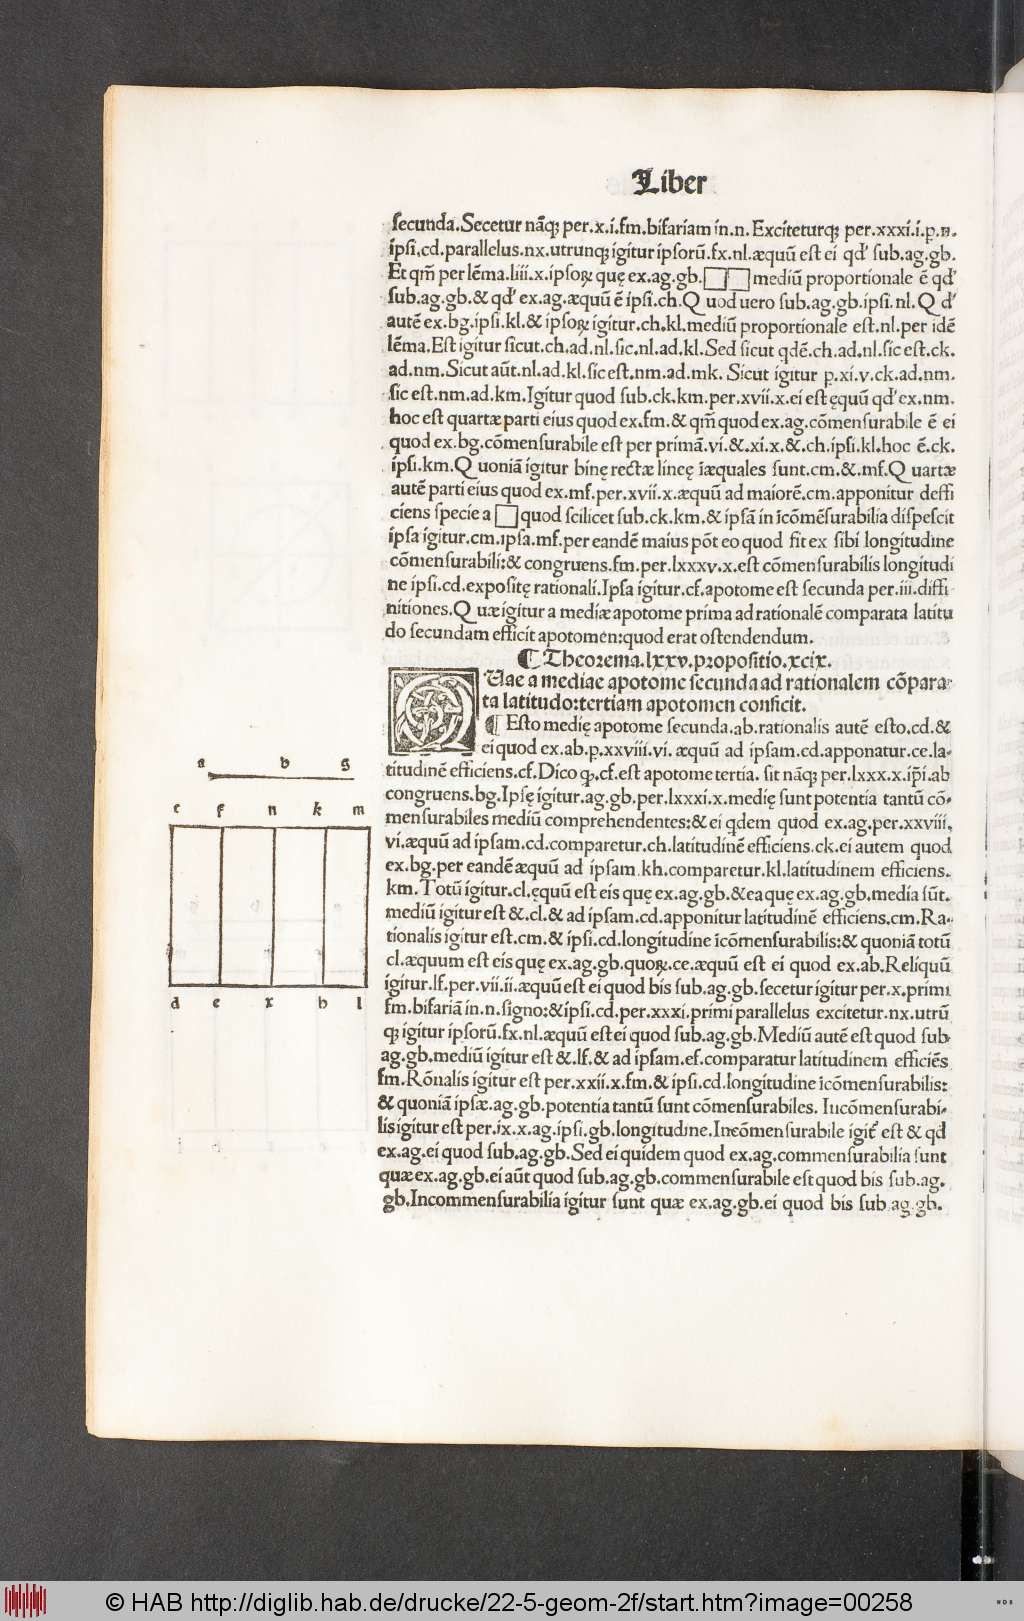 Liber
secunda.Secetur nãq; per.x.i.fm.bifariam in.n.Exciteturq; per.xxxi.i.p.n.
ipsi.cd.parallelus.nx.utrunq; igitur ipsorũ.fx.nl.æquũ est ei qd' sub.ag.gb.
Et qm̃ per lẽma.liii.x.ipsoꝝ quę ex.ag.gb. mediũ proportionale ẽ qd'
sub.ag.gb.& qd' ex.ag.æquũ ẽ ipsi.ch.Quod uero sub.ag.gb.ipsi.nl.Qd'
autẽ ex.bg.ipsi.kl.& ipsoꝝ igitur.ch.kl.mediũ proportionale est.nl.per idẽ
lẽma.Est igitur sicut.ch.ad.nl.sic.nl.ad.kl.Sed sicut qdẽ.ch.ad.nl.sic est.ck.
ad.nm.Sicut aũt.nl.ad.kl.sic est.nm.ad.mk. Sicut igitur p.xi.v.ck.ad.nm.
sic est.nm.ad.km.Igitur quod sub.ck.km.per.xvii.x.ei est ęquũ qd' ex.nm.
hoc est quartæ parti eius quod ex.fm.& qm̃ quod ex.ag.cõmensurabile ẽ ei
quod ex.bg.cõmensurabile est per primã.vi.&.xi.x.&.ch.ipsi.kl.hoc ẽ.ck.
ipsi.km.Quoniã igitur binę rectæ lineę iæquales sunt.cm.&.mf.Quartæ
autẽ parti eius quod ex.mf.per.xvii.x.æquũ ad maiorẽ.cm.apponitur deffi
ciens specie a quod scilicet sub.ck.km.& ipsã in icõmẽsurabilia dispescit
ipsa igitur.cm.ipsa.mf.per eandẽ maius põt eo quod fit ex sibi longitudine
cõmensurabili:& congruens.fm.per.lxxxv.x.est cõmensurabilis longitudi
ne ipsi.cd.expositę rationali.Ipsa igitur.cf.apotome est secunda per.iii.diffi
nitiones.Quæ igitur a mediæ apotome prima ad rationalẽ comparata latitu
do secundam efficit apotomen:quod erat ostendendum.
¶ Theorema.lxxv.propositio.xcix.
QUae a mediae apotome secunda ad rationalem cõpara
ta latitudo:tertiam apotomen conficit.
¶ Esto medię apotome secunda.ab.rationalis autẽ esto.cd.&
ei quod ex.ab.p.xxviii.vi. æquũ ad ipsam.cd.apponatur.ce.la-
titudinẽ efficiens.cf.Dico ꝙ.cf.est apotome tertia. sit nãq; per.lxxx.x.ip̃i.ab
congruens.bg.Ipsę igitur.ag.gb.per.lxxxi.x.medię sunt potentia tantũ cõ-
mensurabiles mediũ comprehendentes:& ei qdem quod ex.ag.per.xxviii.
vi.æquũ ad ipsam.cd.comparetur.ch.latitudinẽ efficiens.ck.ei autem quod
ex.bg.per eandẽ æquũ ad ipsam.kh.comparetur.kl.latitudinem efficiens.
km.Totũ igitur.cl.ęquũ est eis quę ex.ag.gb.& ea quę ex.ag.gb.media sũt.
mediũ igitur est &.cl.& ad ipsam.cd.apponitur latitudinẽ efficiens.cm.Ra-
tionalis igitur est.cm.& ipsi.cd.longitudine icõmensurabilis:& quoniã totũ
cl.æquum est eis quę ex.ag.gb.quoꝝ.ce.æquũ est ei quod ex.ab.Reliquũ
igitur.lf.per.vii.ii.æquũ est ei quod bis sub.ag.gb.secetur igitur per.x.primi
fm.bifariã in.n.signo:& ipsi.cd.per.xxxi.primi parallelus excitetur.nx.utrũ
q; igitur ipsorũ.fx.nl.æquũ est ei quod sub.ag.gb.Mediũ autẽ est quod sub
ag.gb.mediũ igitur est &.lf.& ad ipsam.ef.comparatur latitudinem efficiẽs
fm.Rõnalis igitur est per.xxii.x.fm.& ipsi.cd.longitudine icõmensurabilis:
& quoniã ipsæ.ag.gb.potentia tantũ sunt cõmensurabiles. Incõmensurabi-
lis igitur est per.ix.x.ag.ipsi.gb.longitudine.Incõmensurabile igit̃ est & qd
ex.ag.ei quod sub.ag.gb.Sed ei quidem quod ex.ag.commensurabilia sunt
quæ ex.ag.gb.ei aũt quod sub.ag.gb.commensurabile est quod bis sub.ag.
gb.Incommensurabilia igitur sunt quæ ex.ag.gb.ei quod bis sub.ag.gb.
a b g
c f n k m
d e x h l
© HAB http://diglib.hab.de/drucke/22-5-geom-2f/start.htm?image=00258